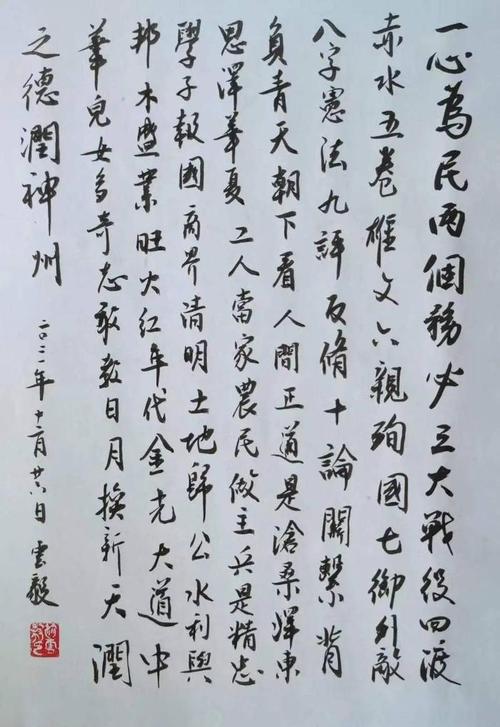 一心為民兩個務必三大戰役四渡
赤水五卷雄文六親殉國七御外敵
八字憲法九評反脩十論關繫背
負青天朝下看人間正道是滄桑澤東
恩澤華夏工人當家農民做主兵是精忠
學子報國商界清明土地歸公水利興
邦木盛業旺火紅年代金光大道中
華兒女多奇志敢教日月換新天潤
之德潤神州
二〇二二年十二月廿六日 雲毅